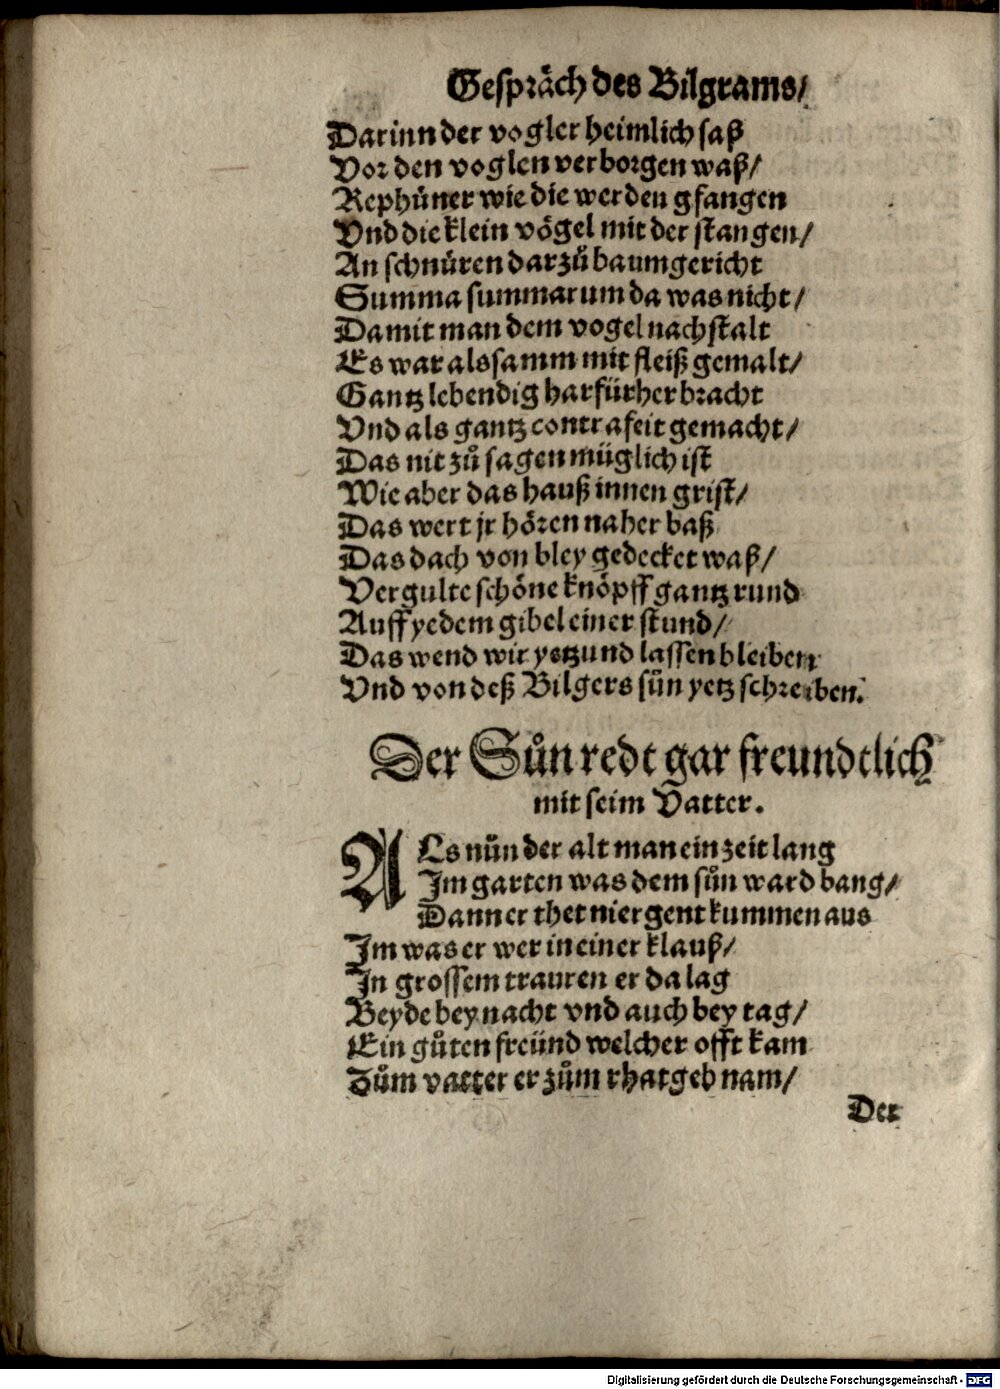 Gespräch des Bilgrams/
Darinn der vogler heimlich saß
Vor den voglen verborgen waß/
Rephüner wie die werden gfangen
Vnd die klein vögel mit der stangen/
An schnüren darzů baumgericht
Summa summarum da was nicht/
Damit man dem vogel nachstalt
Es war alssamm mit fleiß gemalt/
Gantz lebendig harfürher bracht
Vnd als gantz contrafeit gemacht/
Das nit zů sagen müglich ist
Wie aber das hauß innen grist/
Das wert jr hören naher baß
Das dach von bley gedecket waß/
Vergulte schöne knöpff gantz rund
Auff yedem gibel einer stund/
Das wend wir yetzund lassen bleiben
Vnd von deß Bilgers sůn yetz schreiben.
Der Sůn redt gar freundtlich
mit seim Vatter.
ALs nůn der alt man ein zeit lang
Im garten was dem sůn ward bang/
Dann er thet niergent kummen aus
Im was er wer in einer klauß/
In grossem trauren er da lag
Beyde bey nacht vnd auch bey tag/
Ein gůten freünd welcher offt kam
Zům vatter er zům rhatgeb nam/
Der
Digitalisierung gefördert durch die Deutsche Forschungsgemeinschaft - DFG